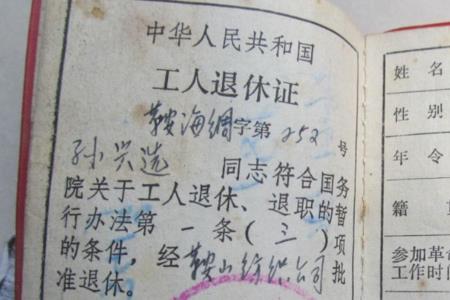 中华人民共和国
工人退休证
鞍海绸字第252号
孙兴选 同志符合国务
院关于工人退休、退职的暂
行办法第一条(三)项
的条件，经鞍山纺织公司批
准退休。
姓名
性别
年令
籍
参加革
工作时